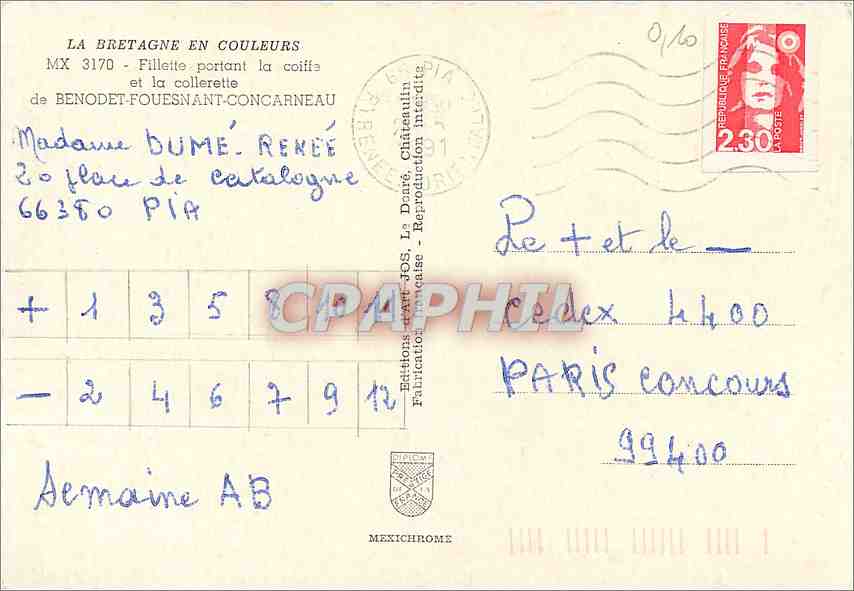 LA BRETAGNE EN COULEURS
MX 3170 - Fillette portant la coiffe
et la collerette
de BENODET-FOUESNANT-CONCARNEAU
Madame DUMÉ- RENEÉ
20 place de catalogne
66380 PIA
+ 1 3 5 8 10 11
- 2 4 6 7 9 12
Semaine AB
Editions d'Art JOS, Le Doaré, Châteaulin
Fabrication Française - Reproduction interdite
DIPLOME
PRESTIGE
DE LA
FRANCE
MEXICHROME
66 PIA
91
0,10
REPUBLIQUE FRANÇAISE
2,30
LA POSTE
Le + et le -
Cedex 4400
PARIS Concours
99400
CPAPHIL